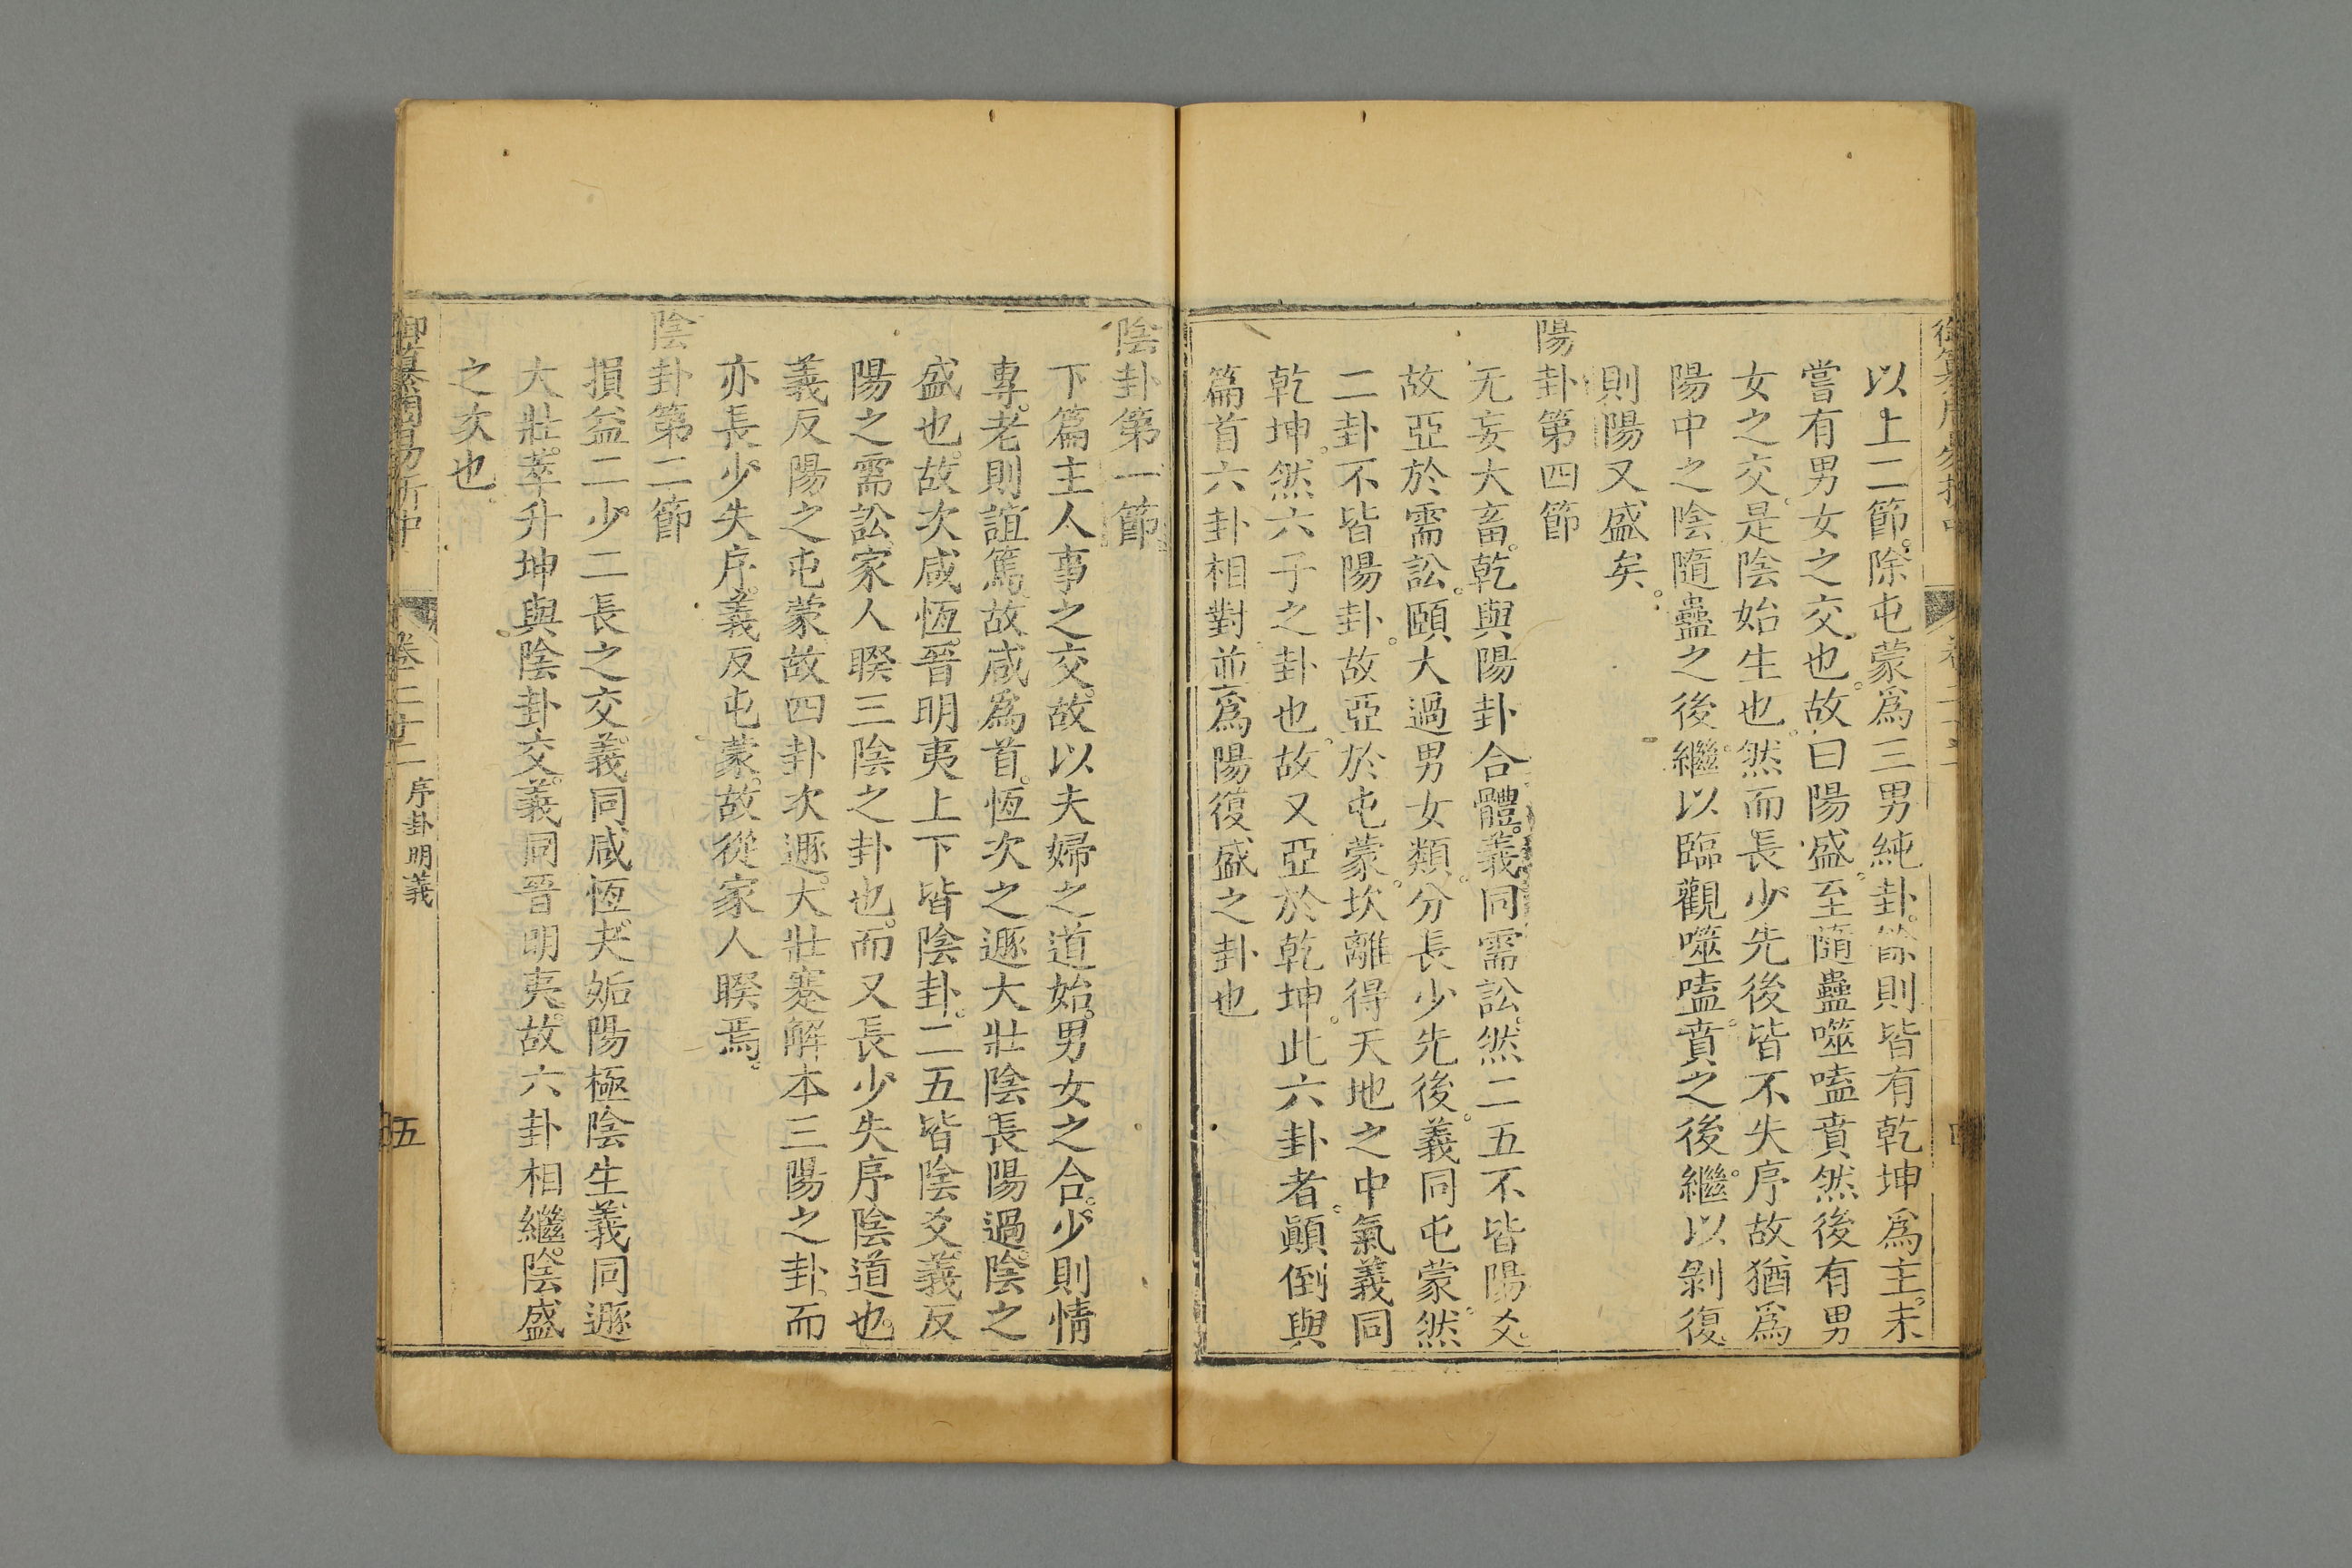 以上二節。除屯蒙爲三男純卦。餘則皆有乾坤爲主。未
嘗有男女之交也。故曰陽盛。至隨蠱噬嗑賁然後有男
女之交。是陰始生也。然而長少先後皆不失序故猶爲
陽中之陰隨蠱之後。繼以臨觀噬嗑賁之後。繼以剝復。
則陽又盛矣。
陽卦第四節
无妄大畜。乾與陽卦合體。義同需訟。然二五不皆陽爻。
故亞於需訟。頤大過男女類。分長少先後。義同屯蒙。然
二卦不皆陽卦。故亞於屯蒙。坎離得天地之中氣義同
乾坤。然六子之卦也。故又亞於乾坤。此六卦者。顚倒與
篇首六卦相對。並爲陽復盛之卦也
陰卦第一節
下篇主人事之交。故以夫婦之道始。男女之合。少則情
專。老則誼篤。故咸爲首。恆次之遯大壯陰長陽過。陰之
盛也。故次咸恆。晉明夷上下皆陰卦。二五皆陰爻。義反
陽之需訟。家人睽三陰之卦也。而又長少失序陰道也。
義反陽之屯蒙故四卦次遯。大壯蹇解本三陽之卦。而
亦長少失序。義反屯蒙。故從家人睽焉。
陰卦第二節
損益二少二長之交。義同咸恆。夬姤陽極陰生。義同遯
大壯。萃升坤與陰卦交。義同晉明夷。故六卦相繼。陰盛
之次也。
御纂周易折中
卷二十二
序卦明義
五